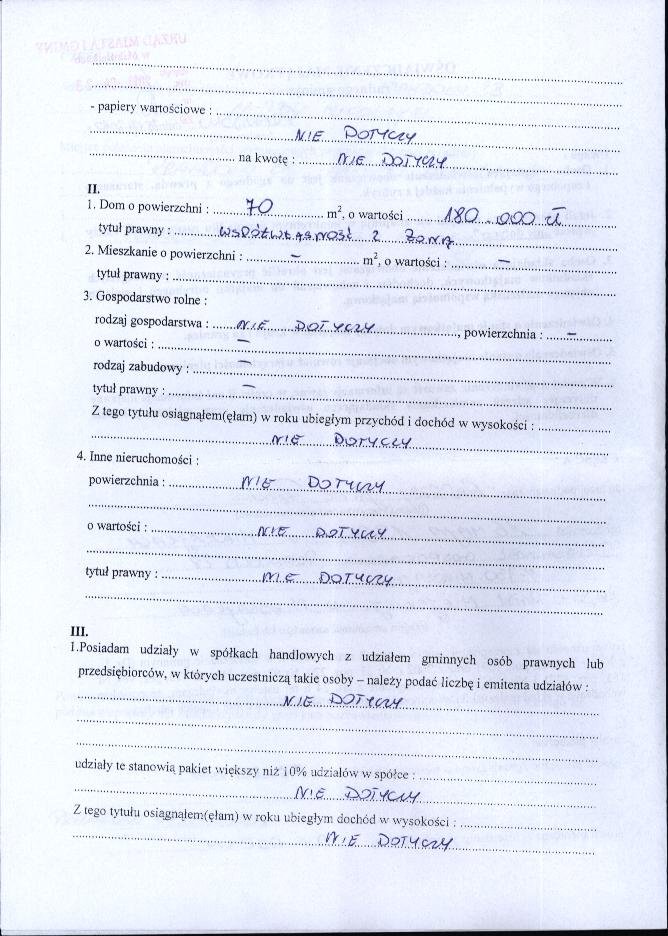 - papiery wartościowe :
NIE DOTYCZY
na kwotę : NIE DOTYCZY
II.
1. Dom o powierzchni : 70 m², o wartości 180.000 zł
tytuł prawny : WSPÓŁWŁASNOŚĆ Z ŻONĄ
2. Mieszkanie o powierzchni : – m², o wartości : –
tytuł prawny :
3. Gospodarstwo rolne :
rodzaj gospodarstwa : NIE DOTYCZY, powierzchnia : –
o wartości : –
rodzaj zabudowy : –
tytuł prawny : –
Z tego tytułu osiągnąłem(ęłam) w roku ubiegłym przychód i dochód w wysokości :
NIE DOTYCZY
4. Inne nieruchomości :
powierzchnia : NIE DOTYCZY
o wartości : NIE DOTYCZY
tytuł prawny : NIE DOTYCZY
III.
1.Posiadam udziały w spółkach handlowych z udziałem gminnych osób prawnych lub
przedsiębiorców, w których uczestniczą takie osoby – należy podać liczbę i emitenta udziałów :
NIE DOTYCZY
udziały te stanowią pakiet większy niż 10% udziałów w spółce :
NIE DOTYCZY
Z tego tytułu osiągnąłem(ęłam) w roku ubiegłym dochód w wysokości :
NIE DOTYCZY